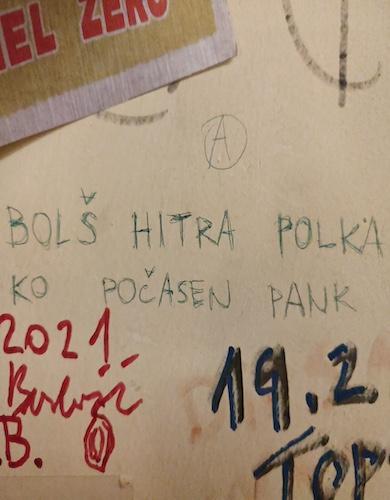 NEL ZERO
A
BOLŠ HITRA POLKA
KO POČASEN PANK
2021
19.2
.B.
TOP